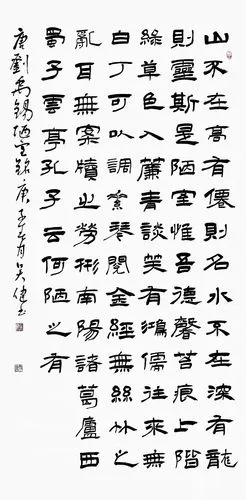 山不在高有僊則名水不在深有龍
則靈斯是陋室惟吾德馨苔痕上階
綠草色入簾青談笑有鴻儒往來無
白丁可以調素琴閱金經無絲竹之
亂耳無案牘之勞形南陽諸葛廬西
蜀子雲亭孔子云何陋之有
唐劉禹錫陋室銘庚子